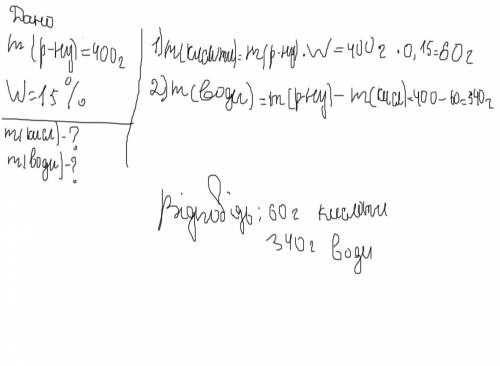 Дано
m(р-ну)=400г
W=15%
m(кисл)-?
m(води)-?
1) m(кислоти)=m(р-ну)·W=400г·0,15=60г
2) m(води)=m(р-ну)-m(кисл)=400-60=340г
Відповідь: 60г кислоти
340г води